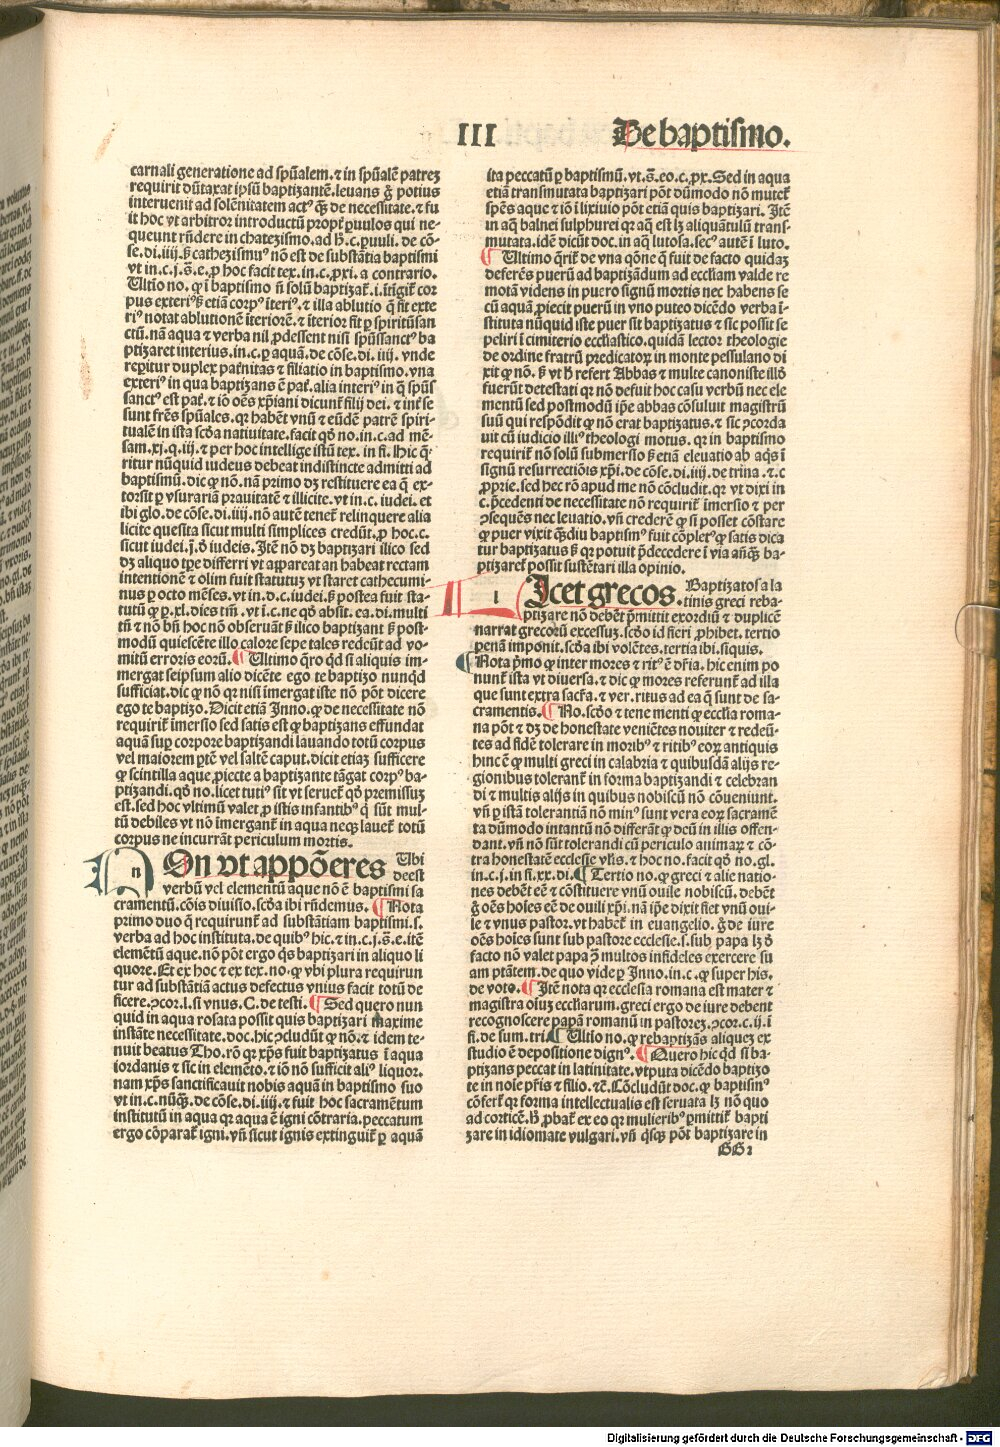 III De baptismo.
carnali generatione ad spũalem. ⁊ in spũalẽ patreꝫ
requirit dũtaxat ipsũ baptizantẽ. leuans g̃ potius
interuenit ad solẽnitatem actꝰ qꝫ de necessitate. ⁊ fu
it hoc vt arbitror introductũ propt̃ puulos qui ne-
queunt rñdere in chatezismo. ad h̃. c. puuli. de cõ-
se. di. iiij. ß cathezismuꝰ nõ est de substãtia baptismi
vt in. c. j. s̃. e. ꝓ hoc facit tex. in. c. ꝓxi. a contrario.
Ultio no. ꝙ i baptismo ñ solũ baptizat̃. i. ĩtigit̃ cor
pus exteriꝰ ß etiã corpꝰ ĩteriꝰ. ⁊ illa ablutio q̃ fit exte
riꝰ notat ablutionẽ ĩteriorẽ. ⁊ ĩterior fit ꝑ spiritũsan
ctũ. nã aqua ⁊ verba nil ꝓdessent nisi spũssanctꝰ ba
ptizaret interius. in. c. ꝑ aquã. de cõse. di. iiij. vnde
reꝑitur duplex pat̃nitas ⁊ filiatio in baptismo. vna
exteriꝰ in qua baptizans ẽ pat̃. alia interiꝰ in q̃ spũs
sanctꝰ est pat̃. ⁊ iõ oẽs xp̃iani dicunt̃ filij dei. ⁊ int̃ se
sunt fr̃es spũales. qꝛ habẽt vnũ ⁊ eũdẽ patrẽ spiri-
tualẽ in ista scd̃a natiuitate. facit qd̃ no. in. c. ad mẽ-
sam. xj. q. iij. ⁊ per hoc intellige istũ tex. in fi. Hic q̃-
ritur nũquid iudeus debeat indistincte admitti ad
baptismũ. dic ꝙ nõ. nã primo dꝫ restituere ea q̃ ex-
torsit ꝑ vsurariã prauitatẽ ⁊ illicite. vt in. c. iudei. et
ibi glo. de cõse. di. iiij. nõ autẽ tenet̃ relinquere alia
licite quesita sicut multi simplices credũt. ꝓ hoc. c.
sicut iudei. j. d̃ iudeis. Itẽ nõ dꝫ baptizari ilico sed
dꝫ aliquo tp̃e differri vt appareat an habeat rectam
intentionẽ ⁊ olim fuit statutuꝫ vt staret cathecumi-
nus ꝑ octo mẽses. vt in. d. c. iudei. ß postea fuit sta-
tutũ ꝙ ꝑ. xl. dies tm̃. vt ĩ. c. ne qd̃ absit. ea. di. multi
tñ ⁊ nõ bñ hoc nõ obseruãt ß ilico baptizant ß post-
modũ quiescẽte illo calore sepe tales redeũt ad vo-
mitũ erroris eorũ. ¶ Ultimo q̃ro qd̃ si aliquis im-
mergat seipsum alio dicẽte ego te baptizo nunqd̃
sufficiat. dic ꝙ nõ qꝛ nisi ĩmergat iste nõ põt dicere
ego te baptizo. Dicit etiã Inno. ꝙ de necessitate nõ
requirit̃ ĩmersio sed satis est ꝙ baptizans effundat
aquã suꝑ corpore baptizandi lauando totũ corpus
vel maiorem ꝑtẽ vel saltẽ caput. dicit etiaꝫ sufficere
ꝙ scintilla aque ꝓiecte a baptizante tãgat corpꝰ ba-
ptizandi. qd̃ no. licet tutiꝰ sit vt seruet̃ qd̃ premissuꝫ
est. sed hoc vltimũ valet ꝓ istis infantibꝰ q̃ sũt mul-
tũ debiles vt nõ ĩmergant̃ in aqua neqꝫ lauet̃ totũ
corpus ne incurrãt periculum mortis.
n
On vt appõeres Ubi
deest
verbũ vel elementũ aque nõ ẽ baptismi sa
cramentũ. cõis diuisio. scd̃a ibi rñdemus. ¶ Nota
primo duo q̃ requirunt̃ ad substãtiam baptismi. s.
verba ad hoc instituta. de quibꝰ hic. ⁊ in. c. j. s̃. e. itẽ
elemẽtũ aque. nõ põt ergo qd̃s baptizari in aliquo li
quore. Et ex hoc ⁊ ex tex. no. ꝙ vbi plura requirun
tur ad substãtiã actus defectus vnius facit totũ de
ficere. ꝯcor. l. si vnus. C. de testi. ¶ Sed quero nun
quid in aqua rosata possit quis baptizari maxime
instãte necessitate. doc. hic ꝯcludũt ꝙ nõ. ⁊ idem te-
nuit beatus Tho. rõ qꝛ xp̃s fuit baptizatus ĩ aqua
iordanis ⁊ sic in elemẽto. ⁊ iõ nõ sufficit aliꝰ liquor.
nam xp̃s sanctificauit nobis aquã in baptismo suo
vt in. c. nũqꝫ. de cõse. di. iiij. ⁊ fuit hoc sacramẽtum
institutũ in aqua qꝛ aqua ẽ igni cõtraria. peccatum
ergo cõparat̃ igni. vñ sicut ignis extinguit̃ ꝑ aquã
ita peccatũ ꝑ baptismũ. vt. s̃. eo. c. pꝛ. Sed in aqua
etiã transmutata baptizari põt dũmodo nõ mutet̃
spẽs aque ⁊ iõ ĩ lixiuio põt etiã quis baptizari. Itẽ
in aq̃ balnei sulphurei qꝛ aq̃ est lꝫ aliquãtulũ trans-
mutata. idẽ dicũt doc. in aq̃ lutosa. secꝰ autẽ ĩ luto.
¶ Ultimo q̃rit̃ de vna qõne q̃ fuit de facto quidaꝫ
deferẽs puerũ ad baptizãdum ad eccliam valde re
motã videns in puero signũ mortis nec habens se
cũ aquã ꝓiecit puerũ in vno puteo dicẽdo verba ĩ-
stituta nũquid iste puer sit baptizatus ⁊ sic possit se
peliri ĩ cimiterio eccliastico. quidã lector theologie
de ordine fratrũ predicatoꝝ in monte pessulano di
xit ꝙ nõ. ß vt h̃ refert Abbas ⁊ multe canoniste illõ
fuerũt detestati qꝛ nõ defuit hoc casu verbũ nec ele
mentũ sed postmodũ ip̃e abbas cõsuluit magistrũ
suũ qui respõdit ꝙ nõ erat baptizatus. ⁊ sic ꝯcorda
uit cũ iudicio illiꝰ theologi motus. qꝛ in baptismo
requirit̃ nõ solũ submersio ß etiã eleuatio ab aq̃s ĩ
signũ resurrectiõis xp̃i. de cõse. di. iiij. de trina. ⁊. c
ꝓprie. sed hec rõ apud me nõ cõcludit. qꝛ vt dixi in
c. p̃cedenti de necessitate nõ requirit̃ ĩmersio ⁊ per
ꝯsequẽs nec leuatio. vñ crederẽ ꝙ si posset cõstare
ꝙ puer vixit qꝫdiu baptismꝰ fuit cõpletꝰ ꝙ satis dica
tur baptizatus ß qꝛ potuit p̃decedere ĩ via añqꝫ ba-
ptizaret̃ possit sustẽtari illa opinio.
l
Icet grecos. Baptizatos a la
tinis greci reba-
ptizare nõ debẽt p̃mittit exordiũ ⁊ duplicẽ
narrat grecorũ excessuꝫ. scd̃o id fieri ꝓhibet. tertio
penã imponit. scd̃a ibi volẽtes. tertia ibi. siquis.
¶ Nota p̃mo ꝙ inter mores ⁊ ritꝰ ẽ dr̃ia. hic enim po
nunt̃ ista vt diuersa. ⁊ dic ꝙ mores referunt̃ ad illa
que sunt extra sacr̃a. ⁊ ver. ritus ad ea q̃ sunt de sa-
cramentis. ¶ No. scd̃o ⁊ tene menti ꝙ ecclia roma-
na põt ⁊ dꝫ de honestate veniẽtes nouiter ⁊ redeũ-
tes ad fidẽ tolerare in moribꝰ ⁊ ritibꝰ eoꝝ antiquis
hinc ẽ ꝙ multi greci in calabria ⁊ quibusdã alijs re-
gionibus tolerant̃ in forma baptizandi ⁊ celebran
di ⁊ multis alijs in quibus nobiscũ nõ cõueniunt.
vñ ꝑ istã tolerantiã nõ minꝰ sunt vera eoꝝ sacramẽ
ta dũmodo intantũ nõ differãt ꝙ deũ in illis offen-
dant. vñ nõ sũt tolerandi cũ periculo animaꝝ ⁊ cõ-
tra honestatẽ ecclesie vl̃is. ⁊ hoc no. facit qd̃ no. gl.
in. c. j. in fi. xx. di. ¶ Tertio no. ꝙ greci ⁊ alie natio-
nes debẽt eẽ ⁊ cõstituere vnũ ouile nobiscũ. debẽt
g̃ oẽs hoĩes eẽ de ouili xp̃i. nã ip̃e dixit fiet vnũ oui-
le ⁊ vnus pastor. vt habet̃ in euangelio. g̃ de iure
oẽs hoĩes sunt sub pastore ecclesie. s. sub papa lꝫ d̃
facto nõ valet papa ꝯ̃ multos infideles exercere su
am ptãtem. de quo vide ꝑ Inno. in. c. ꝙ super his.
de voto. ¶ Itẽ nota ꝙ ecclesia romana est mater ⁊
magistra oĩuꝫ eccliarum. greci ergo de iure debent
recognoscere papã romanũ in pastoreꝫ. ꝯcor. c. ij. ĩ
fi. de sum. tri. ¶ Ultio no. ꝙ rebaptizãs aliqueꝫ ex
studio ẽ depositione dignꝰ. ¶ Quero hic qd̃ si ba-
ptizans peccat in latinitate. vtputa dicẽdo baptizo
te in noĩe pr̃is ⁊ filio. ⁊c̃. Cõcludũt doc. ꝙ baptismꝰ
cõfert̃ qꝛ forma intellectualis est seruata lꝫ nõ quo
ad corticẽ. h̃ ꝓbat̃ ex eo qꝛ mulieribꝰ ꝑmittit̃ bapti
zare in idiomate vulgari. vñ q̃sqꝫ põt baptizare in
GG 2
Digitalisierung gefördert durch die Deutsche Forschungsgemeinschaft - DFG